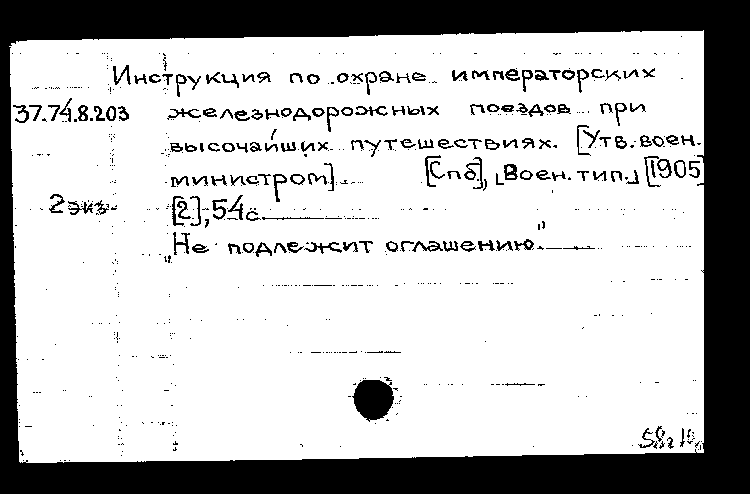 Инструкция по охране императорских
37.74.8.203 железнодорожных поездов при
высочайших путешествиях. [Утв. воен.
министром]. [Спб], [Воен. тип.] [1905]
2 экз. [2], 54 с.
"Не подлежит оглашению."